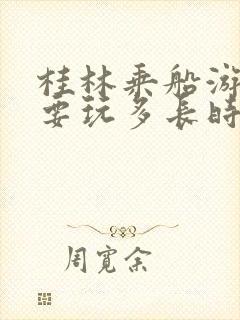 桂林乘船游
要玩多长时
周宽余